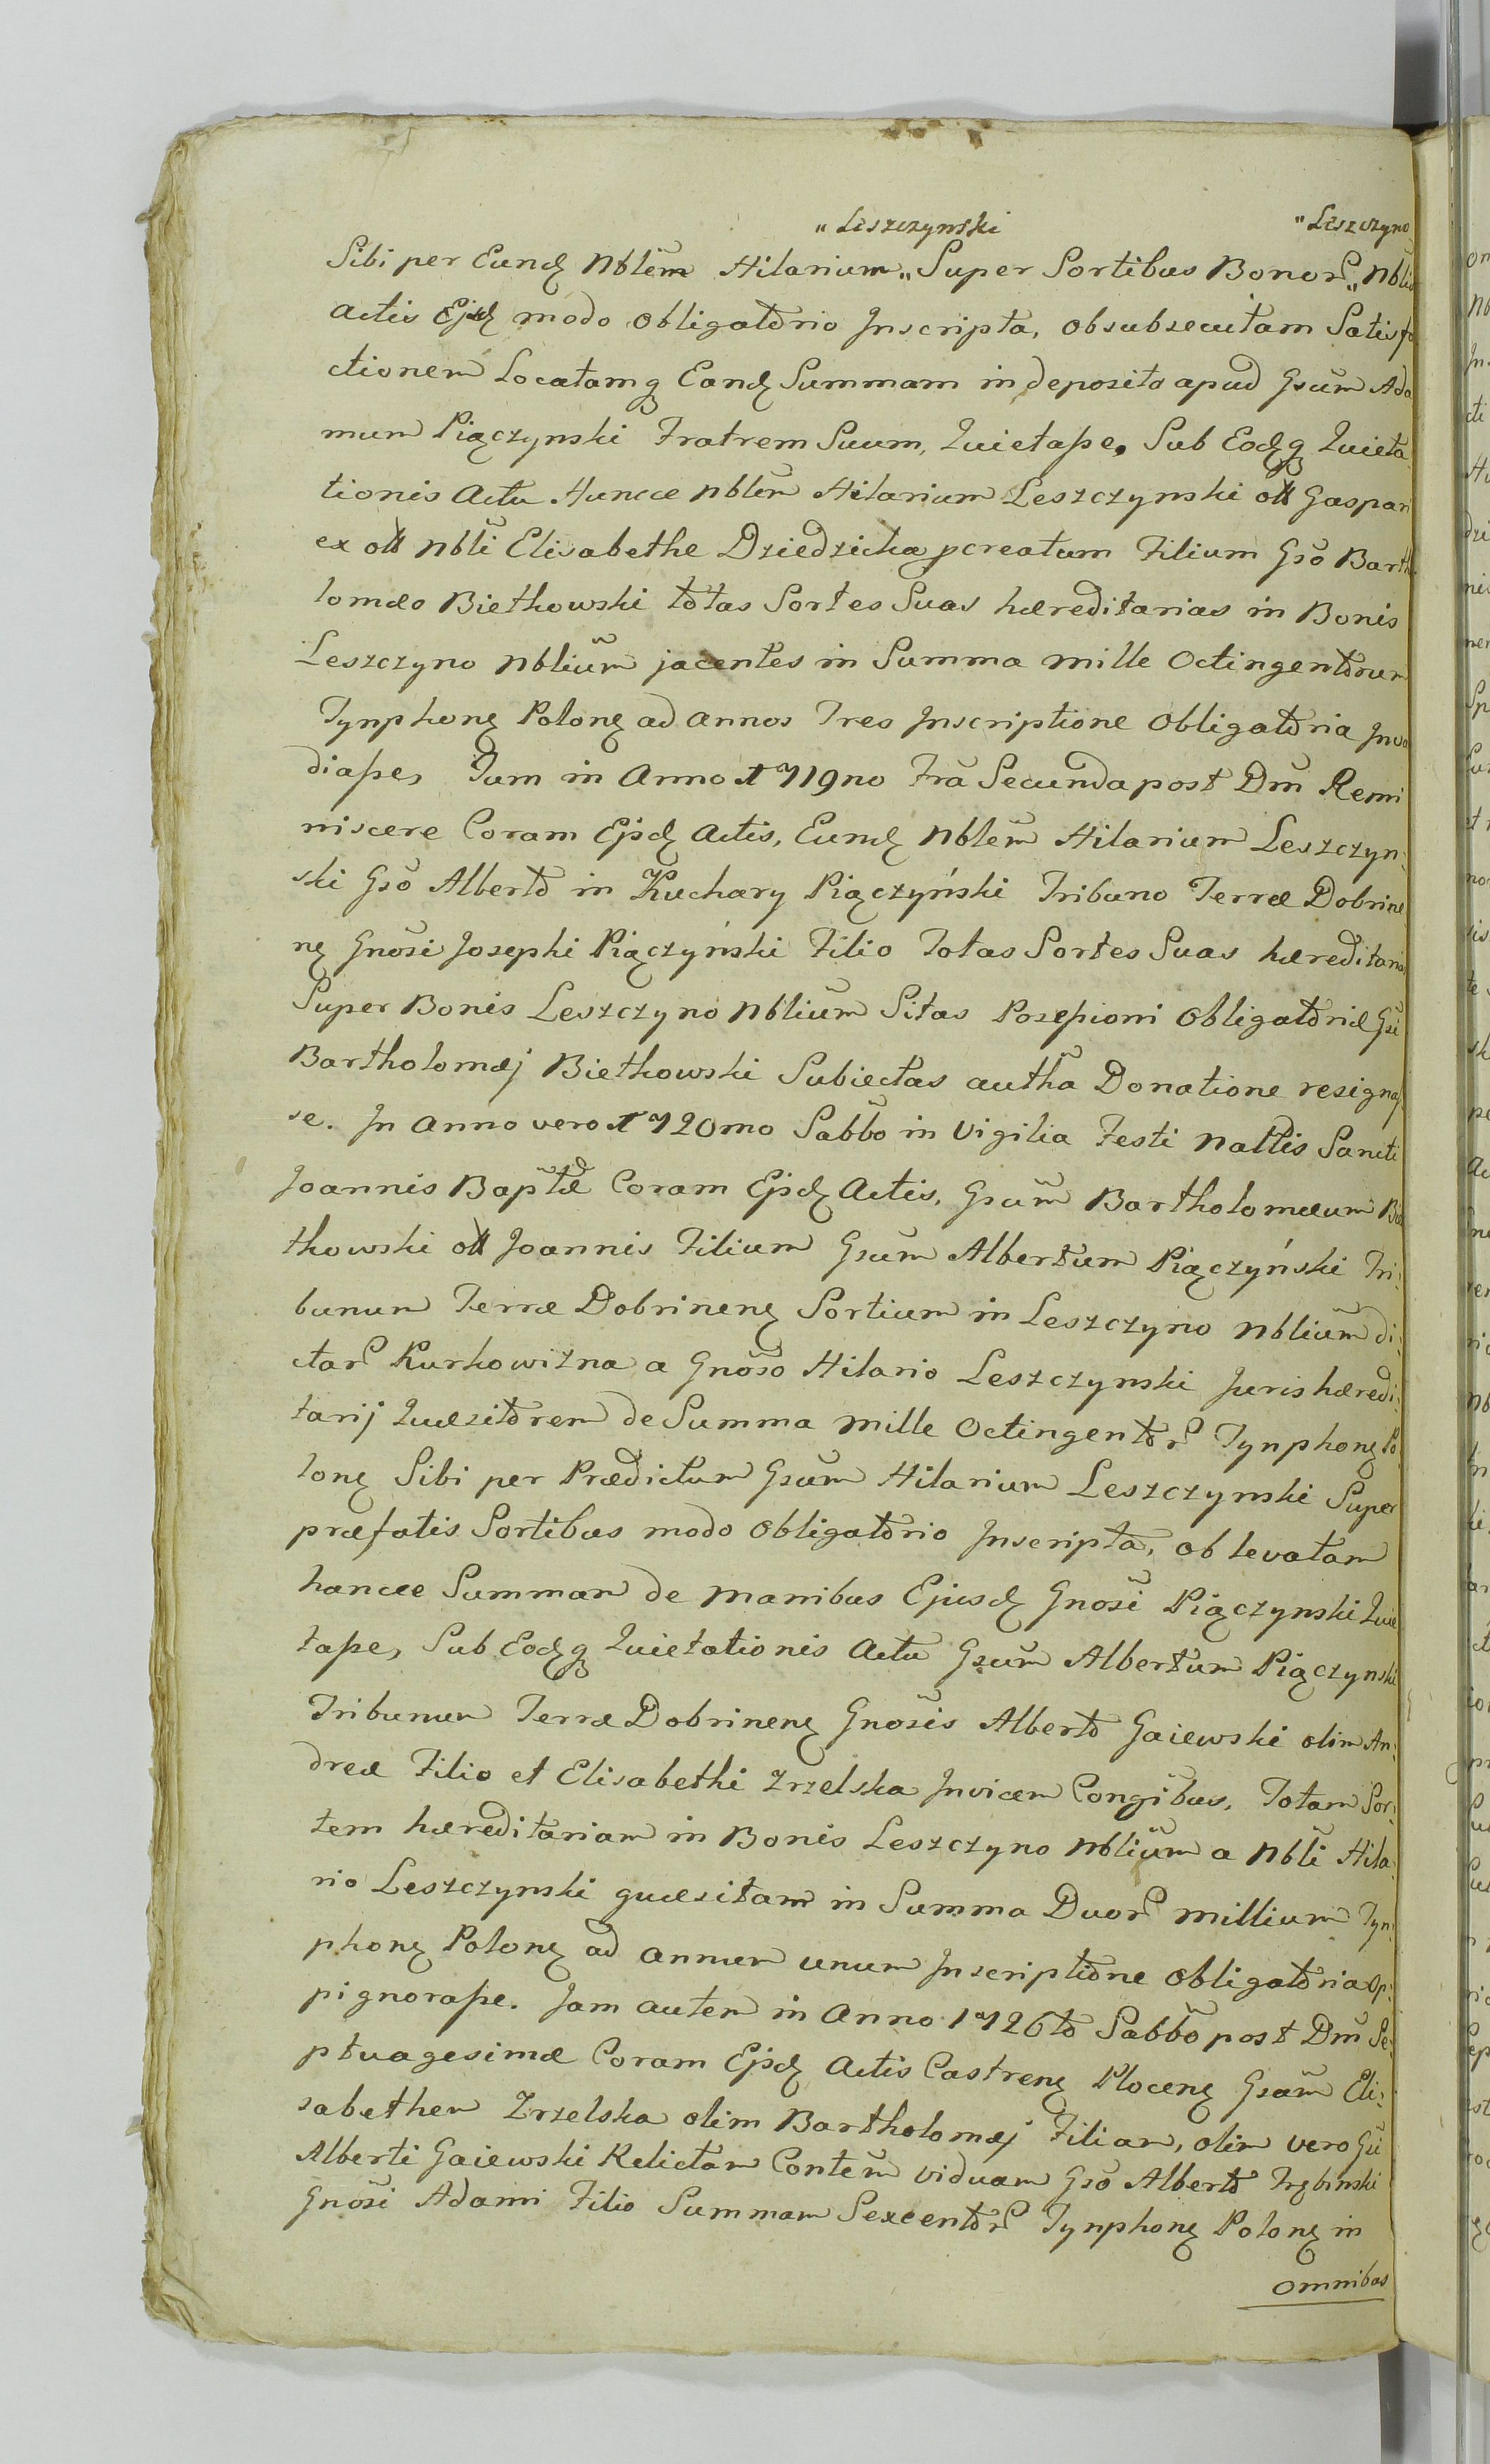 „Leszczynski „Leszczyno
Sibi per Eund Nblem Hilarium„ Super Sortibus Bonor„ Nbliu
Actis Ejsd modo Obligatorio Inscripta, ob subsecutam Satisfa
ctionem Locatamq Eand Summam in deposito apud Gsum Ada
mum Piączynski Fratrem Suum, Quietasse, Sub Eodq Quieta
tionis Actu Huncce Nblem Hilarium Leszczynski olt Gaspari
ex olt Nbli Elisabethe Dziedzicka pcreatum Filium Gso Bartho
lomæo Bietkowski totas Sortes Suas hæreditarias in Bonis
Leszczyno Nblium jacentes in Summa mille Octingentorum
Tynphonę Polonę ad annos Tres Inscriptione Obligatoria Inva
diasse, Tum in Anno 1719no Fra Secunda post Dm Remi
niscere Coram Ejsd Actis, Eund Nblem Hilarium Leszczyn:
ski Gso Alberto in Kuchary Piączyński Tribuno Terræ Dobrine
nę Gnosi Josephi Piączyński Filio Totas Sortes Suas hæreditarias
Super Bonis Leszczyno Nblium Sitas Possessioni Obligatoriæ Gsi
Bartholomæj Bietkowski Subiectas autha Donatione resignas
se. In Anno vero 1720mo Sabbo in Vigilia Festi Naltis Sancti
Joannis Baptæ Coram Ejsd Actis, Gsum Bartholomæum Bie
tkowski olt Joannis Filium Gsum Albertum Piączyński Tri:
bunum Terræ Dobrinenę Sortium in Leszczyno Nblium di:
ctar Kurkowizna a Gnoso Hilario Leszczynski Juris hæredi:
tarij Quæsitorem de Summa mille Octingentor Tynphonę Po
lonę Sibi per Prædictum Gsum Hilarium Leszczynski Super
præfatis Sortibus modo Obligatorio Inscripta, ob levatam
hancce Summam de manibus Ejusd Gnosi Piączynski Quie
tasse, Sub Eodq Quietationis Actu Gsum Albertum Piączynski
Tribunum Terræ Dobrinenę Gnosis Alberto Gaiewski olim An:
dreæ Filio et Elisabethi Zrzelska Invicem Congibus, Totam Sor:
tem hæreditariam in Bonis Leszczyno Nblium a Nbli Hila
rio Leszczynski quæsitam in Summa Duor millium Tyn:
phonę Polonę ad annum unum Inscriptione Obligatoria Op:
pignorasse. Jam autem in Anno 1726to Sabbo post Dm Se:
ptuagesimæ Coram Ejsd Actis Castrenę Plocenę Gsam Eli:
sabetham Zrzelska olim Bartholomæj Filiam, olim vero Gsi
Alberti Gaiewski Relictam Contem viduam Gso Alberto Trębinski
Gnosi Adami Filio Summam Sexcentor Tynphonę Polonę in
omnibus